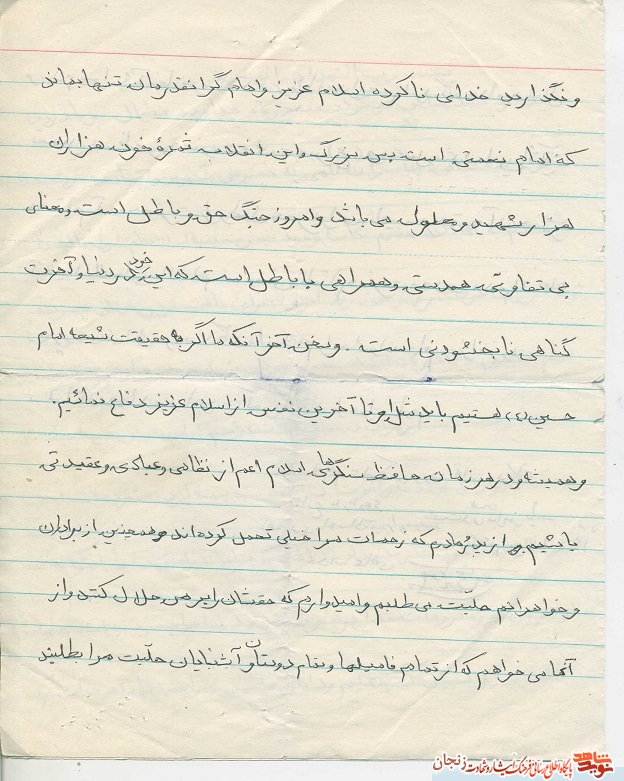 ونگذارید خدای ناکرده اسلام عزیز و امام گرانقدرمان تنها بماند
که امام نعمتی است بس بزرگ و این انقلاب ثمرهٔ خون هزاران
هزار شهید و معلول می باشد و امروز جنگ حق و باطل است و معنای
بی تفاوتی همدستی و همراهی با باطل است که این خود در دنیا و آخرت
گناهی نابخشودنی است. و سخن آخر آنکه ما اگر به حقیقت شیعه امام
حسین (ع) هستیم باید مثل او تا آخرین نفس از اسلام عزیز دفاع نمائیم.
و همیشه و در هر زمان حافظ سنگرهای اسلام اعم از نظامی و عبادی و عقیدتی
باشیم و از پدر و مادرم که زحمات مرا خیلی تحمل کرده اند و همچنین از برادران
و خواهرانم حلیّت می طلبم و امیدوارم که حقشان را بر من حلال کنند و از
آنها می خواهم که از تمام فامیلها و تمام دوستان و آشنایان حلیّت مرا بطلبند
نوید شاهد
پایگاه اطلاع رسانی فرهنگ ایثار و شهادت زنجان